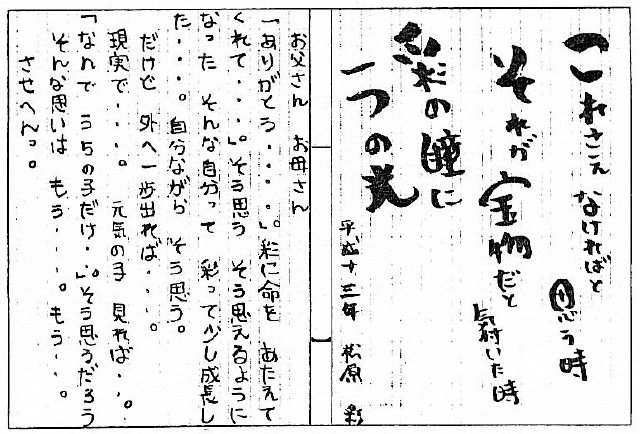 これさえ なければと
思う時
それが 宝物だと
気付いた時
彩の瞳に
一つの光
平成十三年 松原 彩
お父さん お母さん
「ありがとう・・・・」。彩に命を あたえて
くれて・・・」。そう思う そう思えるように
なった そんな自分って 彩って少し成長し
た・・・。自分ながら そう思う。
だけど 外へ一歩出れば・・・。
現実で・・・。 元気の子 見れば・・・。
「なんで うちの子だけ・・」。そう思うだろう
そんな思いは もう・・・。もう・・・。
させへん。。